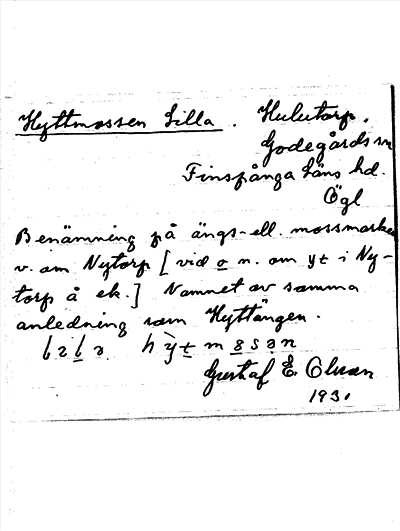 Hyttmossen Lilla. Hulutorp,
Godegårds sn
Finspånga läns hd.
Ögl
Benämning på ängs- ell. mossmarken
v. om Nytorp [vid o n. om yt i Ny-
torp å ek.] Namnet av samma
anledning som Hyttängen.
Gustaf E. Olson
1931